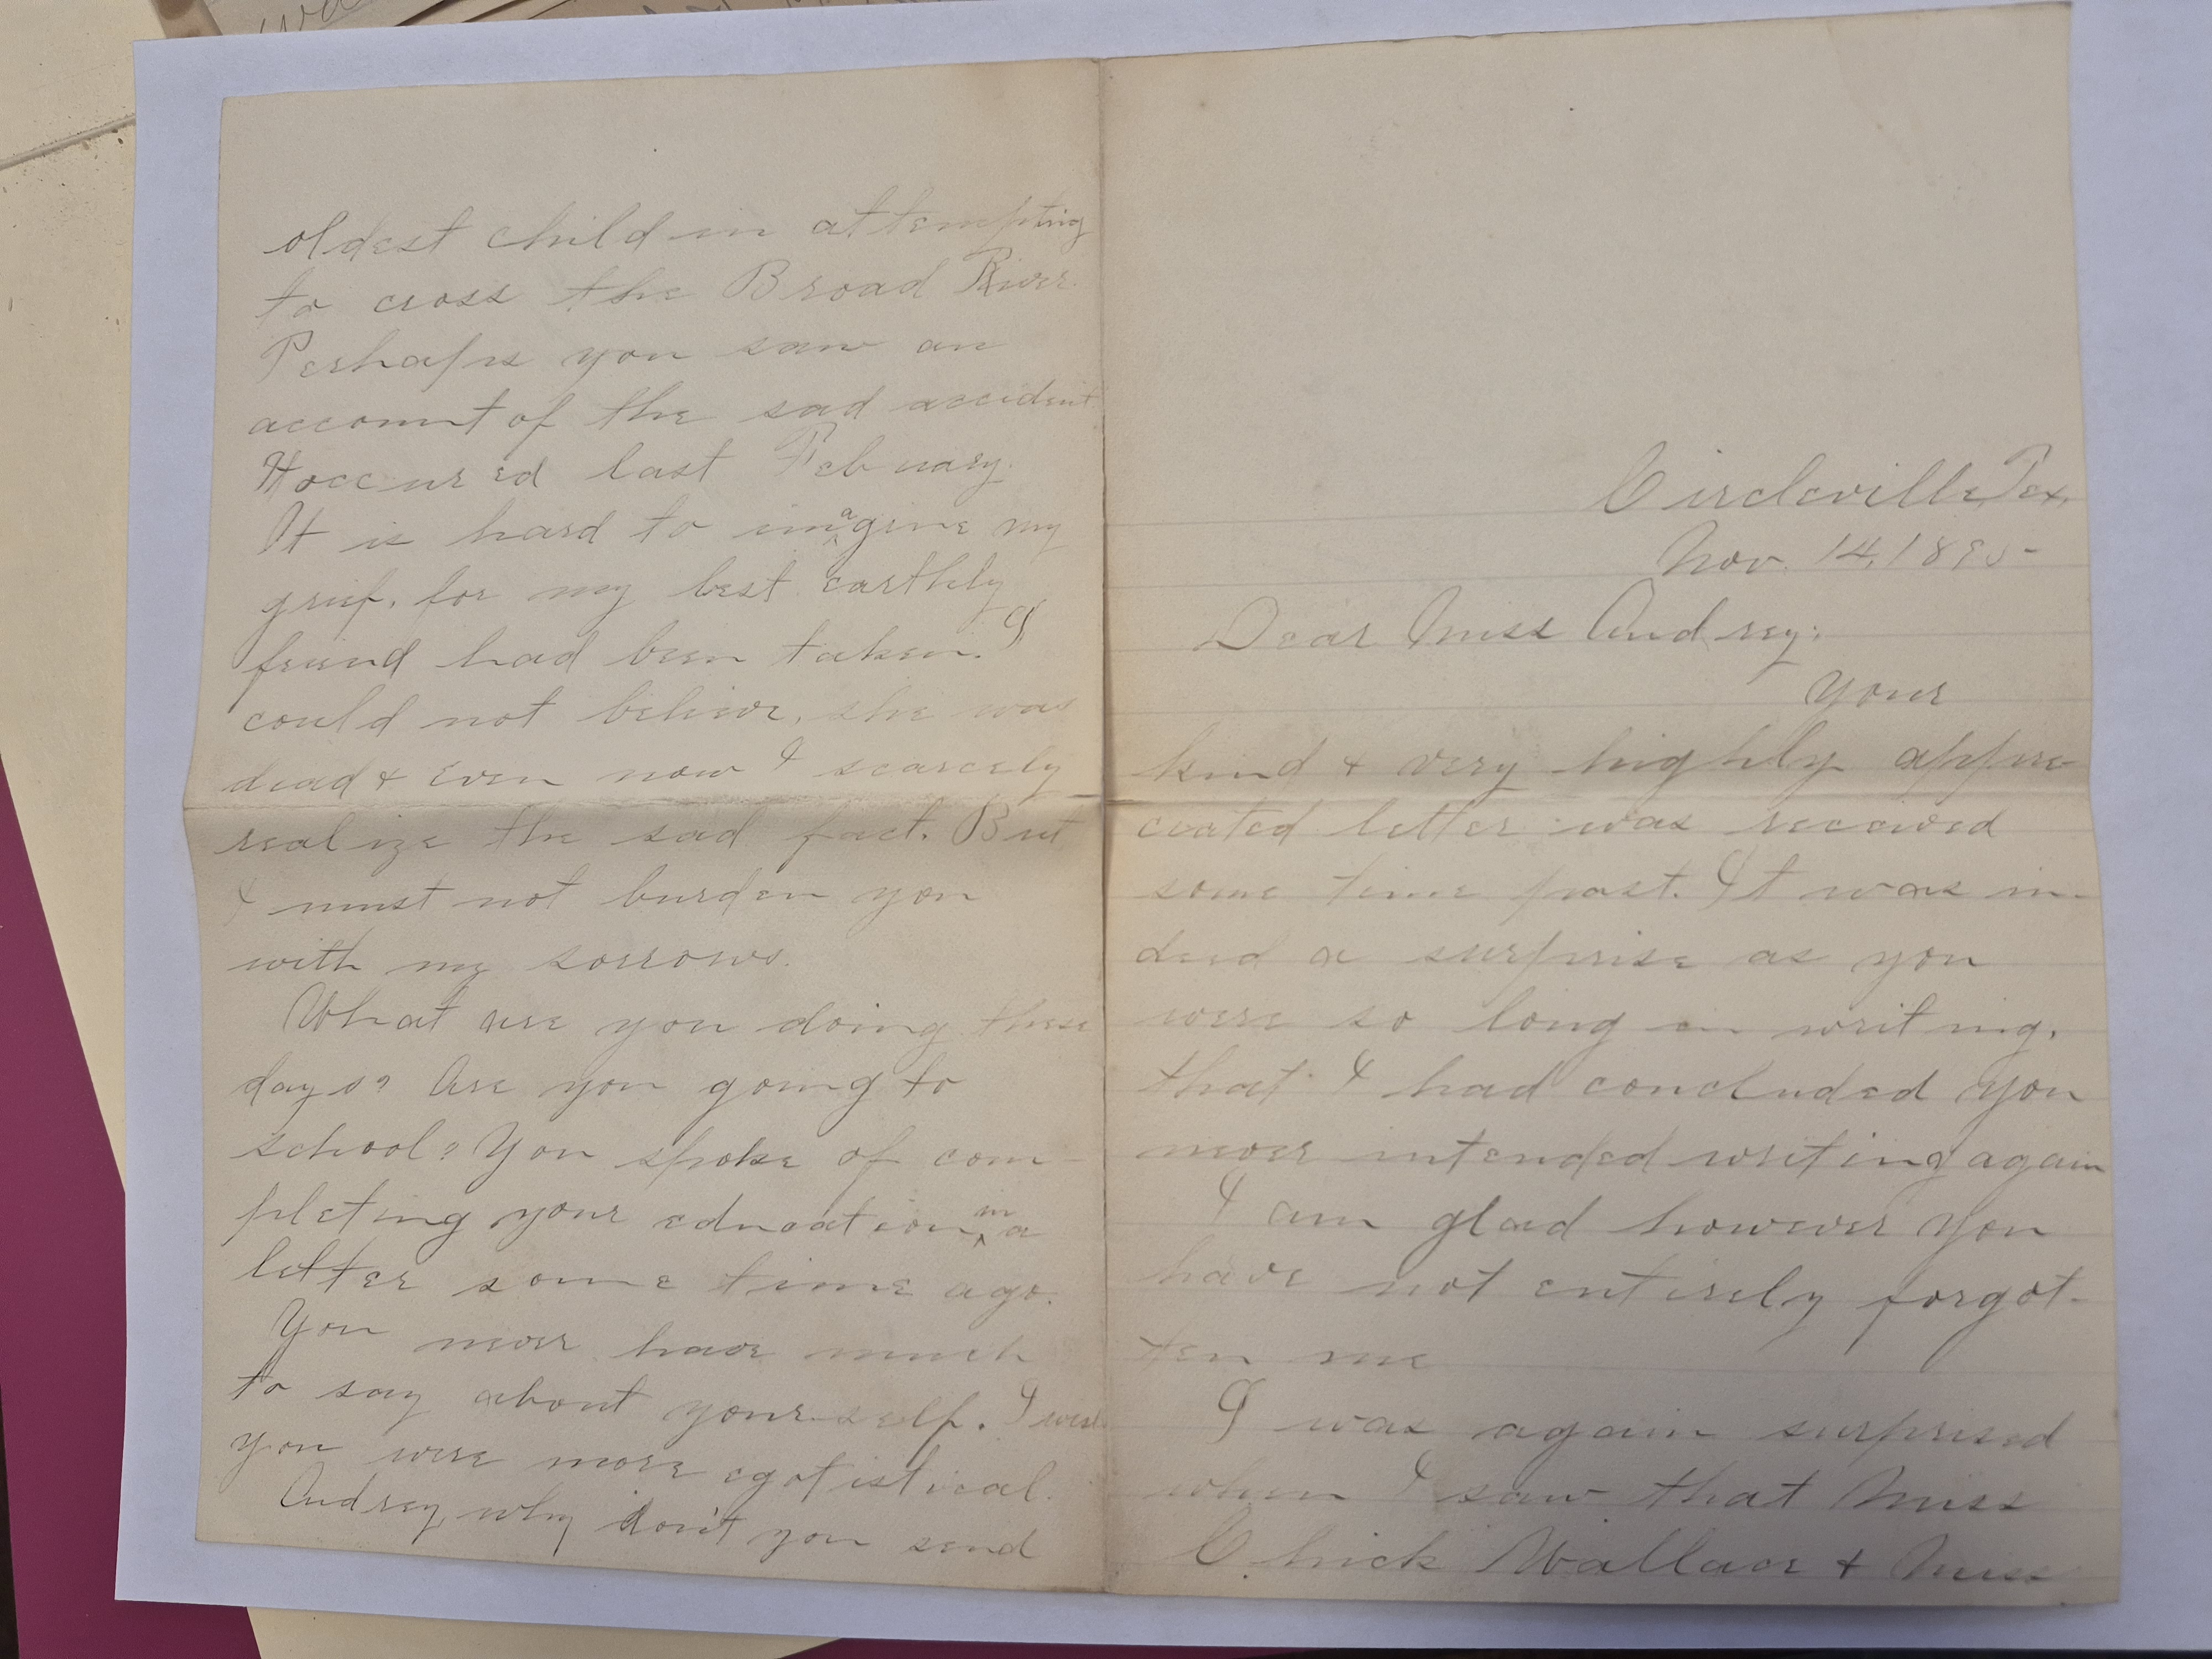 Circleville, Tex,
Nov. 14, 1895-
Dear Miss Audrey:
Your
kind & very highly appre-
ciated letter was received
some time past. It was in-
deed a surprise as you
were so long in writing,
that I had concluded you
never intended writing again
I am glad however you
have not entirely forgot-
ten me
I was again surprised
when I saw that Miss
Chick Wallace & Miss
oldest child in attempting
to cross the Broad River.
Perhaps you saw an
account of the sad accident
It occured last February.
It is hard to imagine my
grief, for my best earthly
friend had been taken. I
could not believe, she was
dead & even now I scarcely
realize the sad fact. But
I must not burden you
with my sorrows.
What are you doing these
days? Are you going to
school? You spoke of com-
pleting your education in a
letter some time ago.
You never have much
to say about yourself. I wish
you were more egotistical.
Audrey, why don't you send